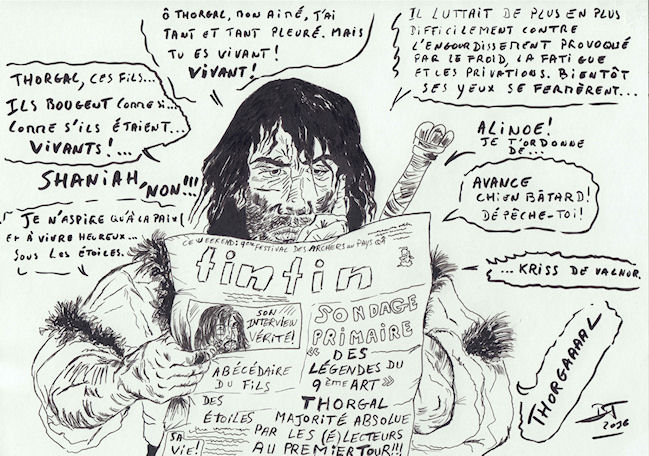 Ô THORGAL, MON AIMÉ, J'AI
TANT ET TANT PLEURÉ. MAIS
TU ES VIVANT!
VIVANT!
IL LUTTAIT DE PLUS EN PLUS
DIFFICILEMENT CONTRE
L'ENGOURDISSEMENT PROVOQUÉ
PAR LE FROID, LA FATIGUE
ET LES PRIVATIONS. BIENTÔT
SES YEUX SE FERMÈRENT...
THORGAL, CES FILS...
ILS BOUGENT COMME SI...
COMME S'ILS ÉTAIENT...
VIVANTS!...
ALINOE!
JE T'ORDONNE
DE...
SHANIAH, NON!!!
AVANCE
CHIEN BÂTARD!
DÉPÊCHE-TOI!
JE N'ASPIRE QU'À LA PAIX
ET À VIVRE HEUREUX...
SOUS LES ÉTOILES.
...KRISS DE VALNOR.
THORGAAAAL
CE WEEKEND: 9ème FESTIVAL DES ARCHERS AU PAYS
tintin
SON
INTERVIEW
VÉRITÉ!
ABÉCÉDAIRE
DU FILS
DES
ÉTOILES
SA
VIE!
SONDAGE
PRIMAIRE
"DES
LÉGENDES DU
9ème ART"
THORGAL
MAJORITÉ ABSOLUE
PAR LES (É)LECTEURS
AU PREMIER TOUR!!!
2016